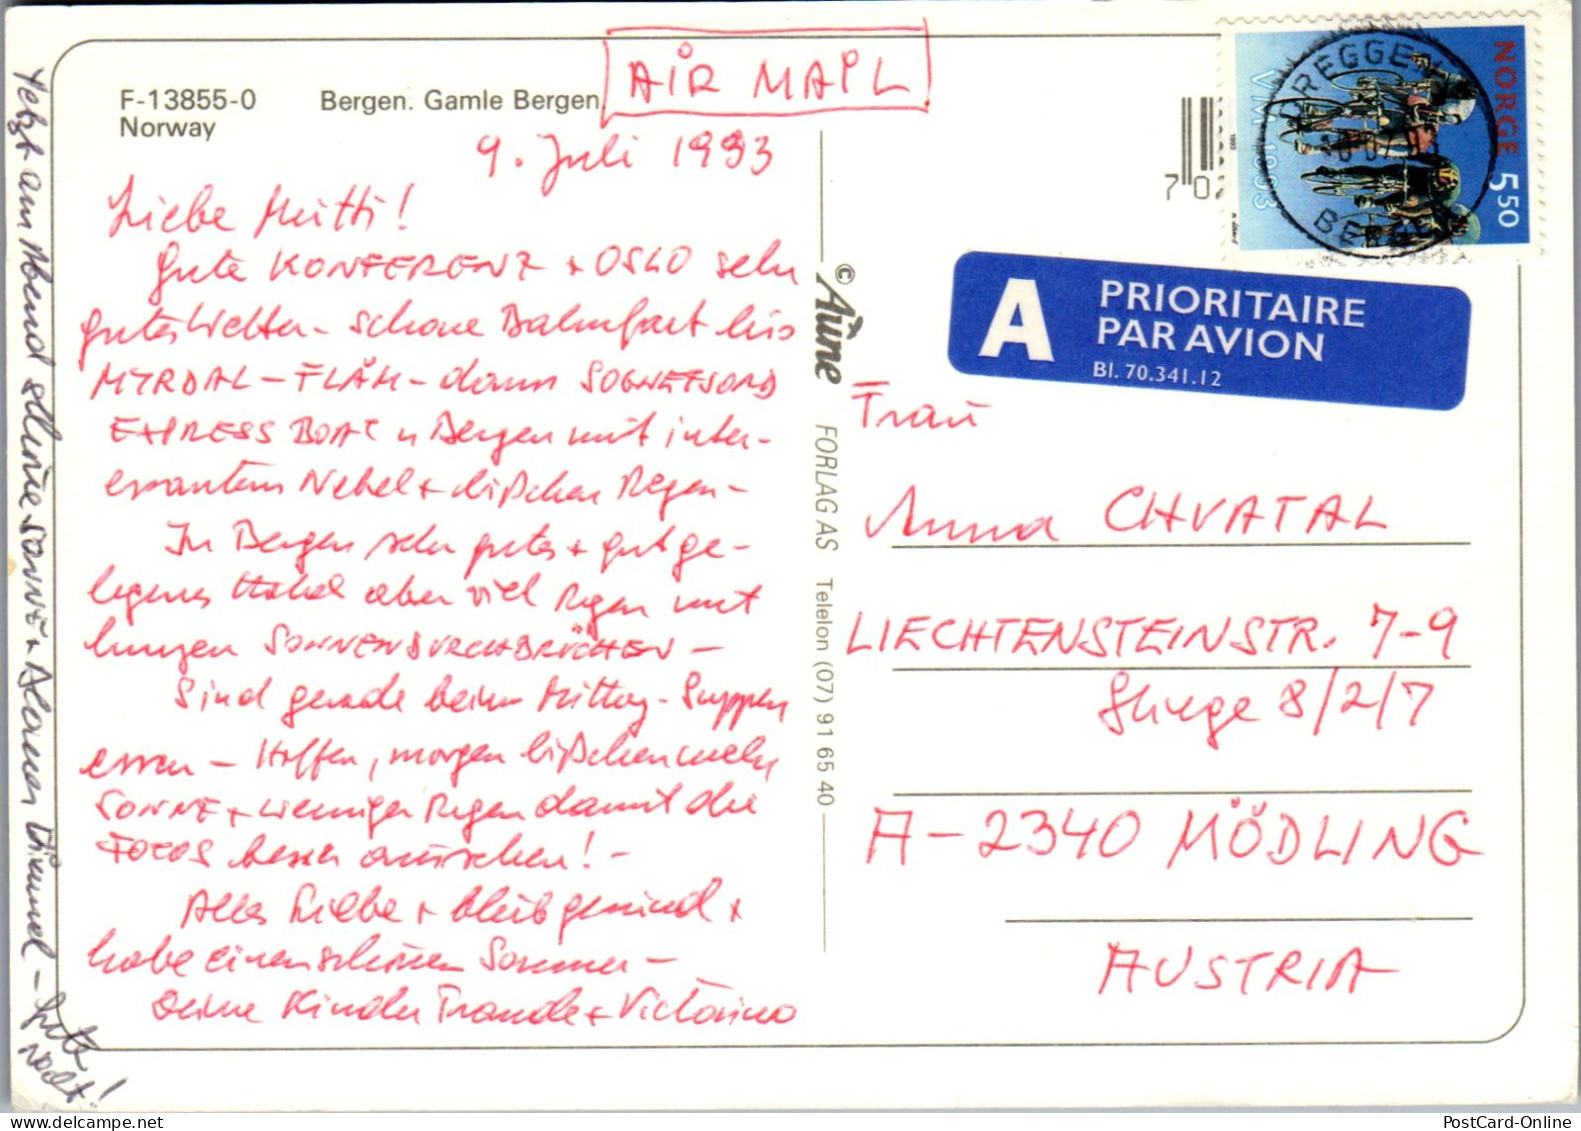 F-13855-0 Bergen. Gamle Bergen
Norway
AIR MAIL
9. Juli 1993
Liebe Mutti!
Gute KONFERENZ + OSLO sehr
gutes Wetter - schöne Bahnfart bis
MYRDAL - FLÅM - dann SOGNEFJORD
EXPRESS BOAT n Bergen mit inter-
essantem Nebel + bißchen Regen -
In Bergen sehr gutes + gut ge-
legenes Hotel aber viel Regen mit
kurzen SONNENDURCHBRÜCHEN -
Sind gerade beim Mittag - Suppen
essen - Hoffen, morgen bißchen mehr
SONNE + weniger Regen damit die
FOTOS besser aussehen! -
Alles Liebe + bleib gesund +
habe einen schönen Sommer -
Deine Kinder Traude + Victorino
Jetzt am Abend schöne SONNE + blauer Himmel - Gute
Nacht!
© Aune FORLAG AS Telefon (07) 91 65 40
702
NORGE 550
VM 1993
1993
DREGGEN
BERGEN
A PRIORITAIRE
PAR AVION
Bl. 70.341.12
Frau
Anna CHVATAL
LIECHTENSTEINSTR. 7-9
Stiege 8/2/7
A-2340 MÖDLING
AUSTRIA
PostCard-Online